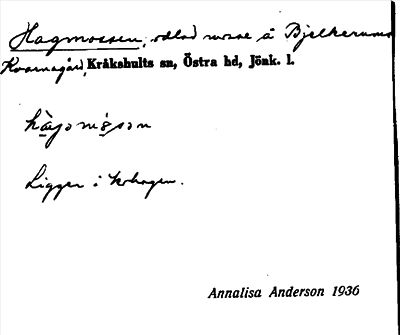 Hagmossen, odlad mosse å Bjelkerums
Kvarnagård, Kråkshults sn, Östra hd, Jönk. l.
Ligger i kohagen.
Annalisa Anderson 1936